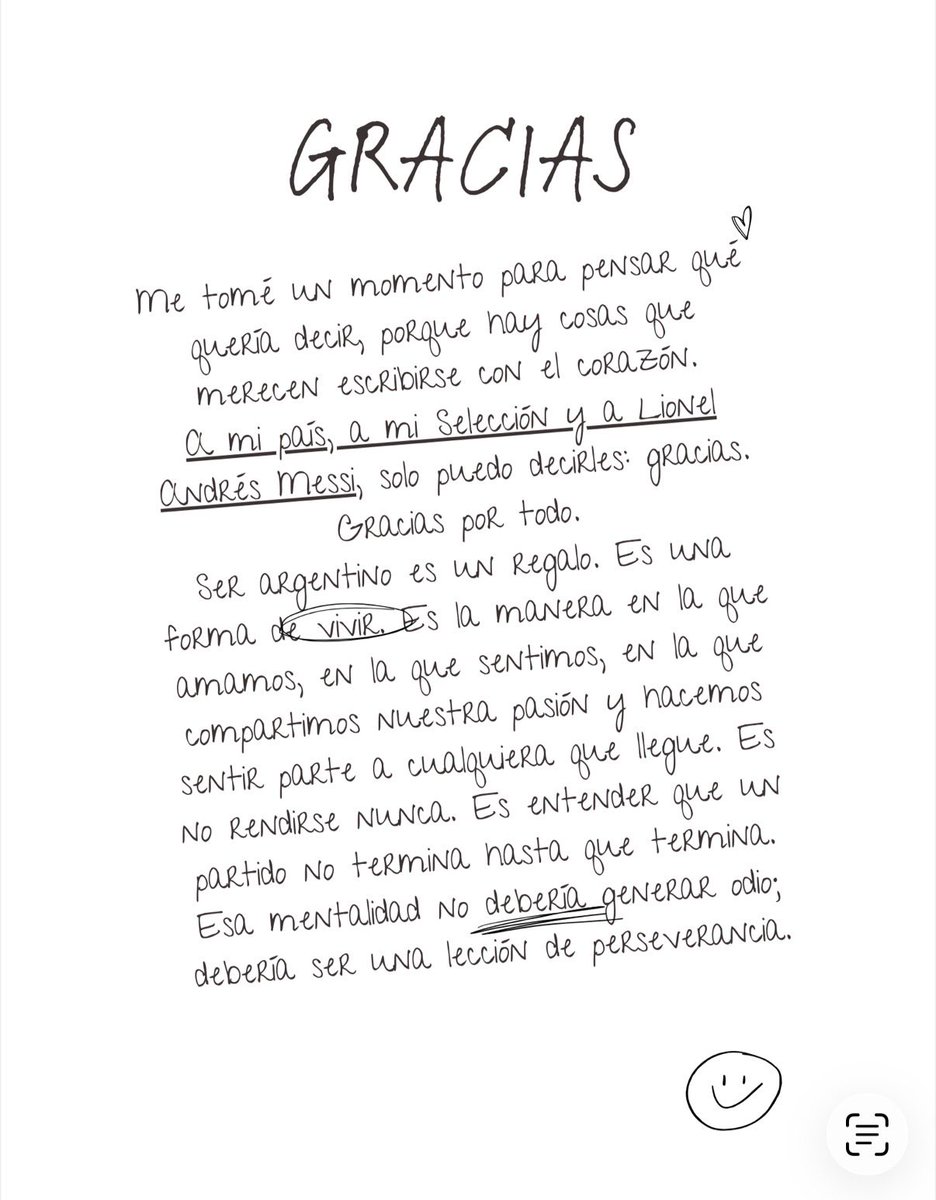 GRACIAS
Me tomé un momento para pensar qué
quería decir, porque hay cosas que
merecen escribirse con el corazón.
A mi país, a mi Selección y a Lionel
Andrés Messi, solo puedo decirles: gracias.
Gracias por todo.
Ser argentino es un regalo. Es una
forma de vivir. Es la manera en la que
amamos, en la que sentimos, en la que
compartimos nuestra pasión y hacemos
sentir parte a cualquiera que llegue. Es
no rendirse nunca. Es entender que un
partido no termina hasta que termina.
Esa mentalidad no debería generar odio;
debería ser una lección de perseverancia.